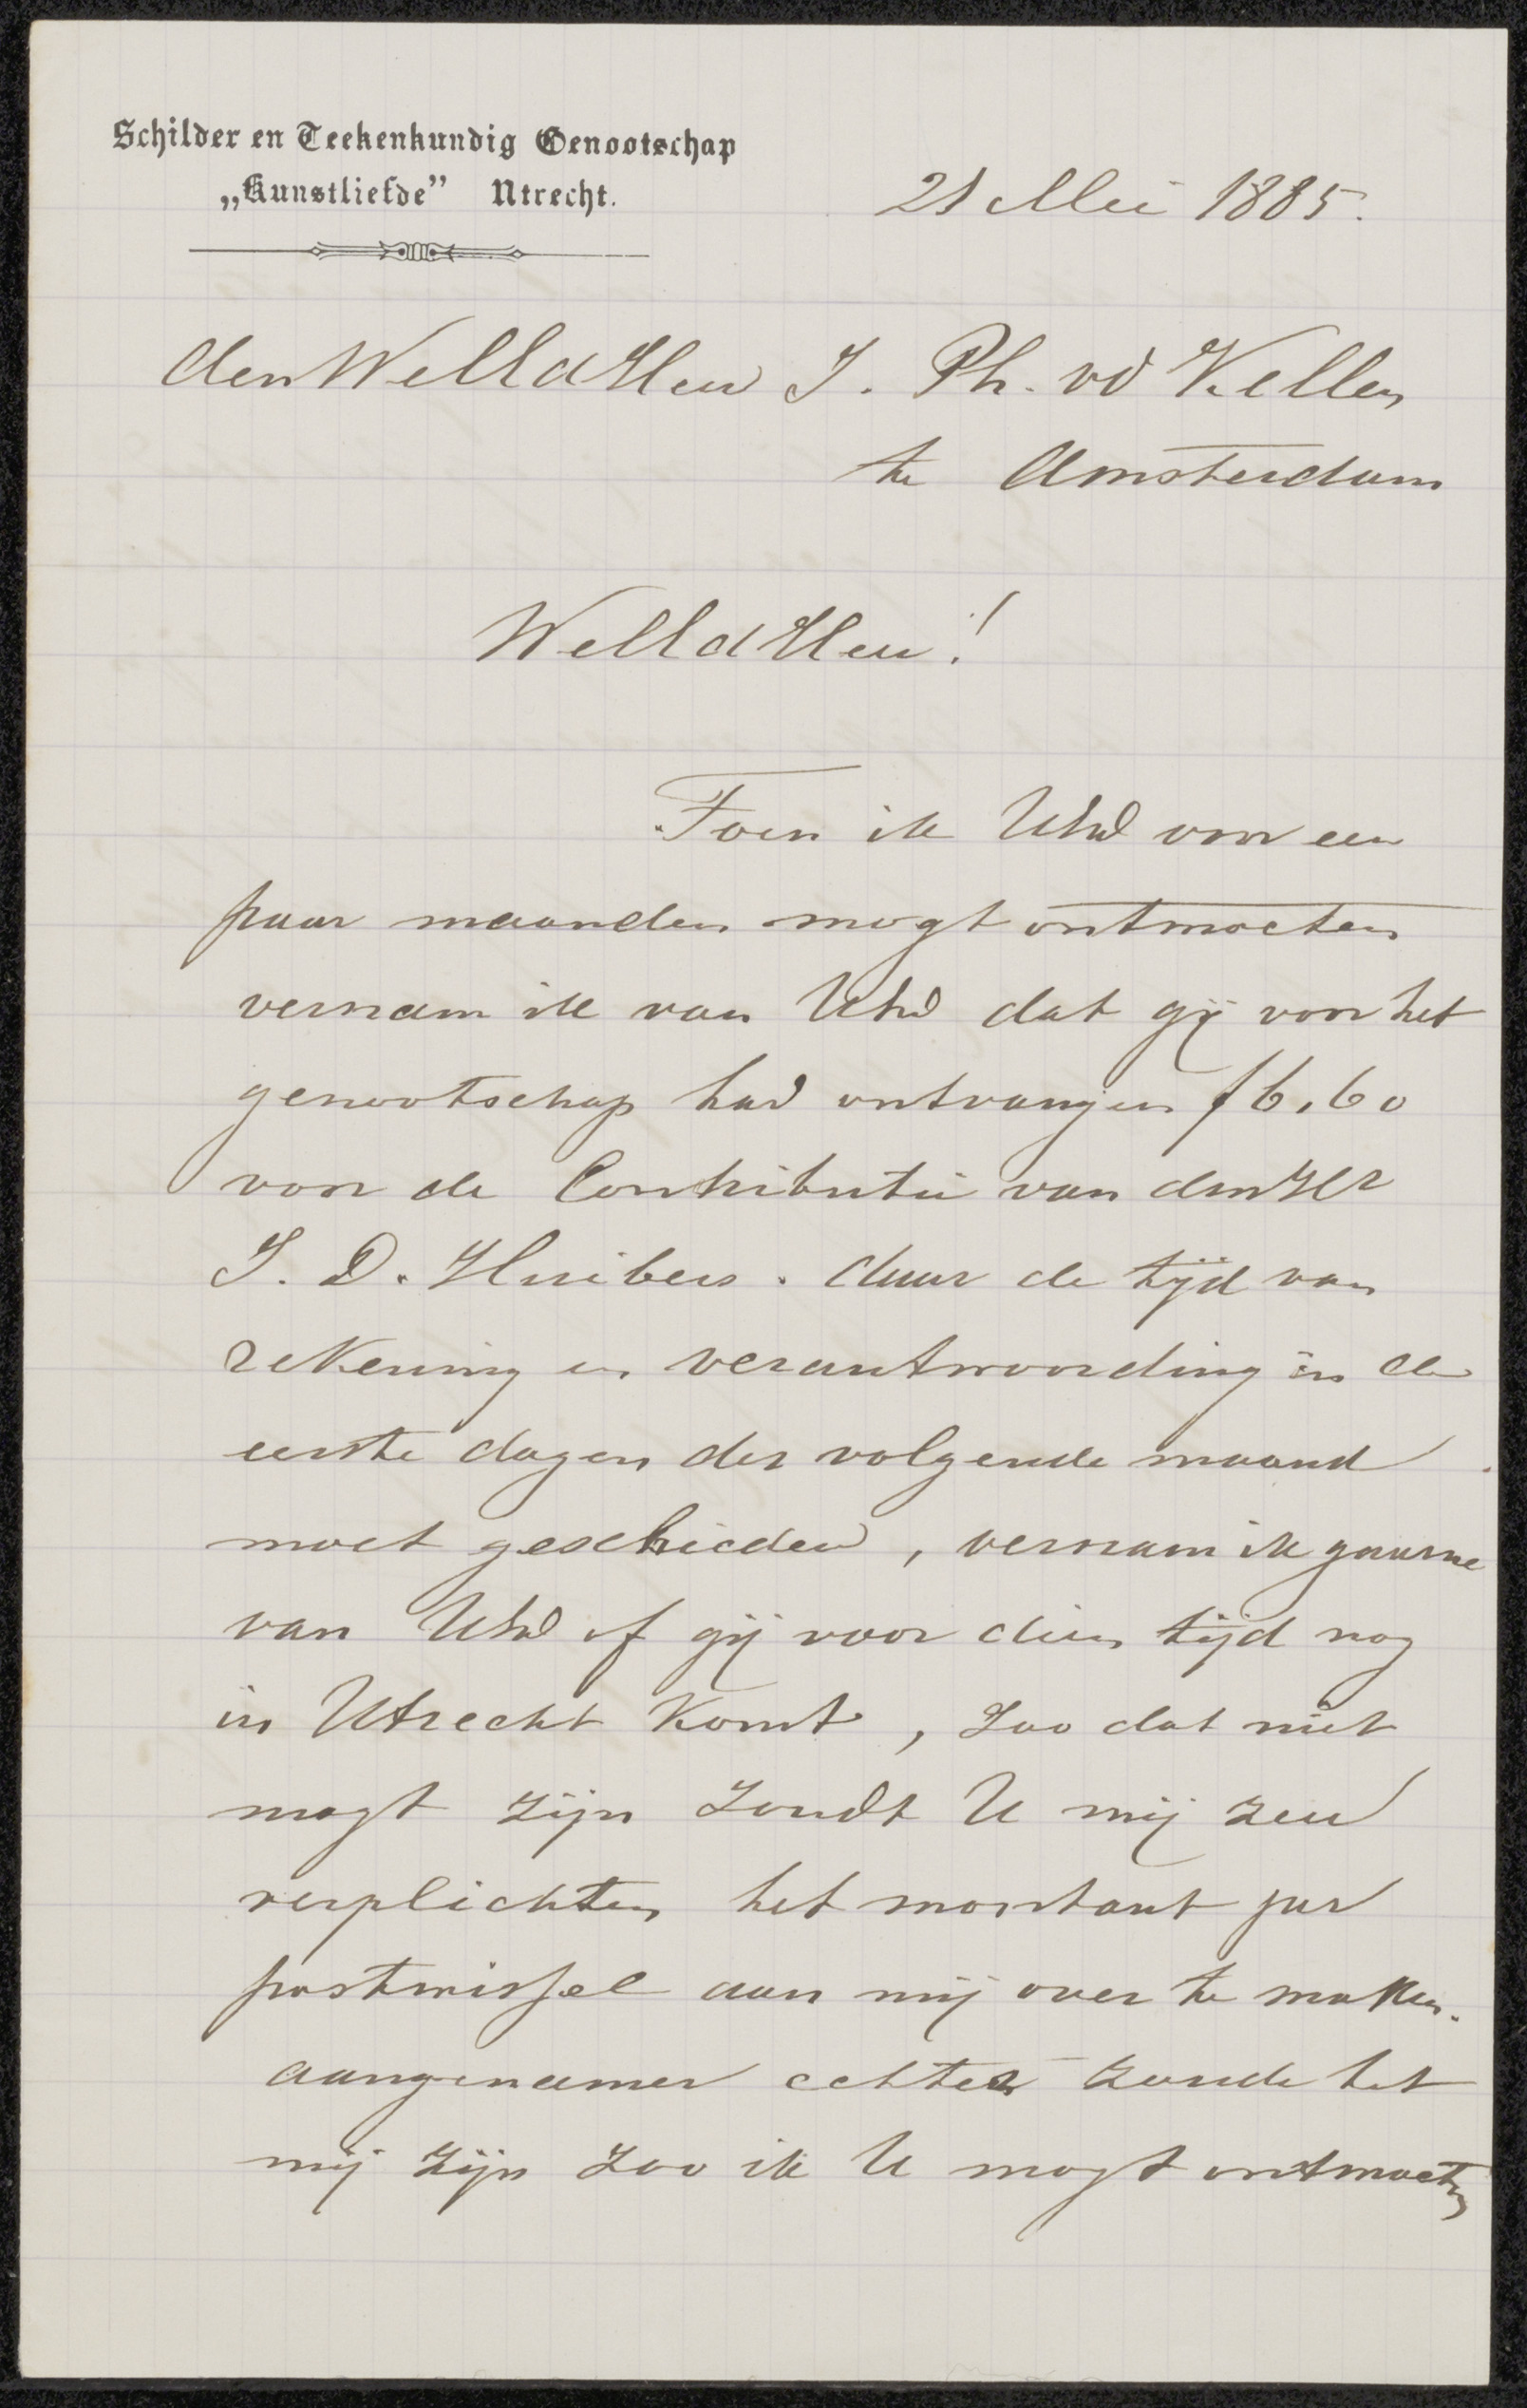 Schilder en Teekenkundig Genootschap
„Kunstliefde” Utrecht.
21 Mei 1885.
den WelEd Heer J. Ph. vd Kellen
te Amsterdam
WelEd Heer!
Toen ik UEd voor een
paar maanden mogt ontmoeten
vernam ik van UEd dat gij voor het
genootschap had ontvangen f 6,60
voor de Contributie van den Hr
J. D. Huibers. daar de tijd van
rekening en verantwoording in de
eerste dagen der volgende maand
moet geschieden, vernam ik gaarne
van UEd of gij voor dien tijd nog
in Utrecht komt, zoo dat niet
mogt zijn zoudt U mij zeer
verplichten het montant per
postwissel aan mij over te maken.
aangenamer echter zoude het
mij zijn zoo ik U mogt ontmoeten